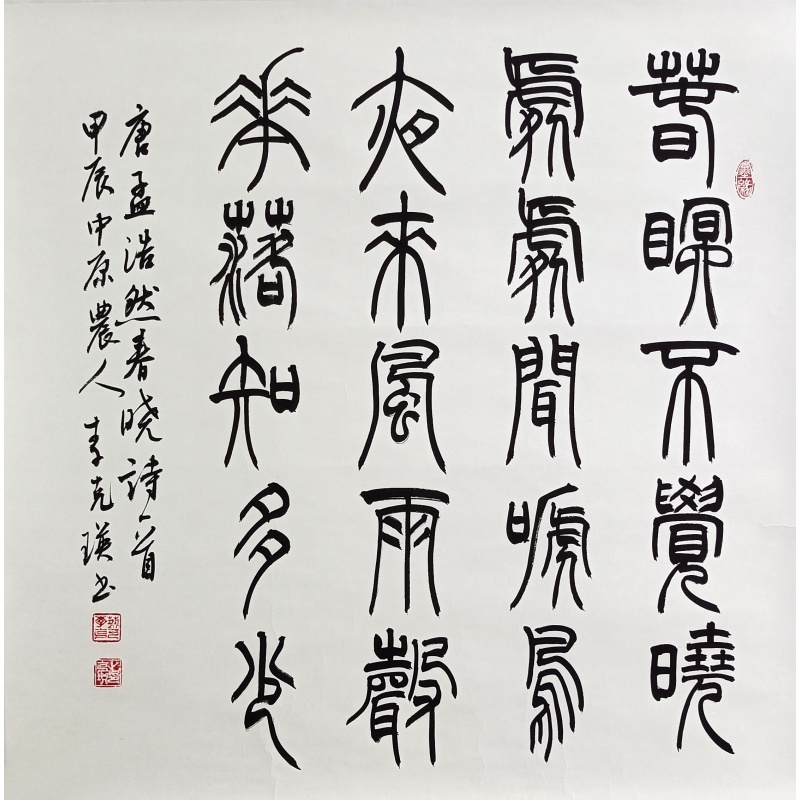 春瞑不覺曉
處處聞嗁鳥
夜來風雨聲
華落知多少
唐孟浩然春晓詩一首
甲辰中原農人李克瑛书